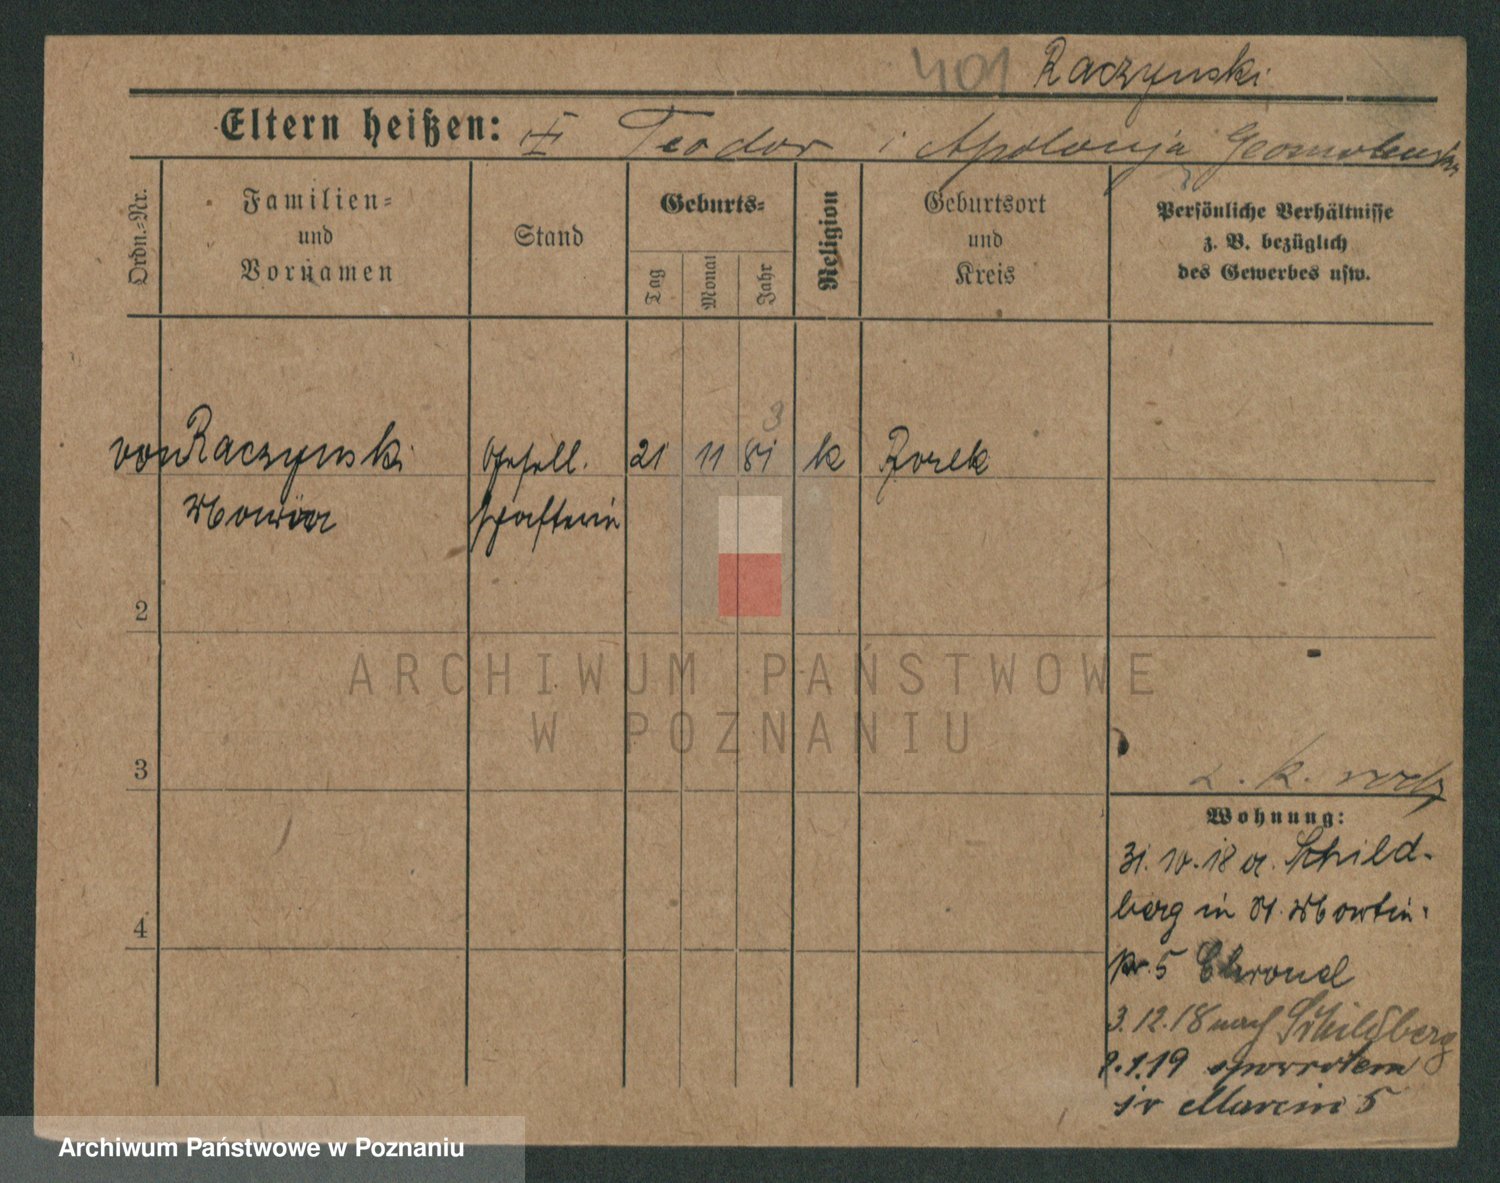 401 Raczynski
Eltern heißen: Teodor i Apolonja
Ordn.-Nr.
Familien-
und
Vornamen
Stand
Geburts-
Tag
Monat
Jahr
Religion
Geburtsort
und
Kreis
Persönliche Verhältnisse
z. B. bezüglich
des Gewerbes usw.
3
von Raczynski Gesell. 21 11 81 k Borek
schafterin
2
3
4
Wohnung:
31.10.18 a. Schild-
berg in St. Martin-
5
3.12.18 nach Schildberg
19 spowrotem
św Marcin 5
ARCHIWUM PAŃSTWOWE
W POZNANIU
Archiwum Państwowe w Poznaniu